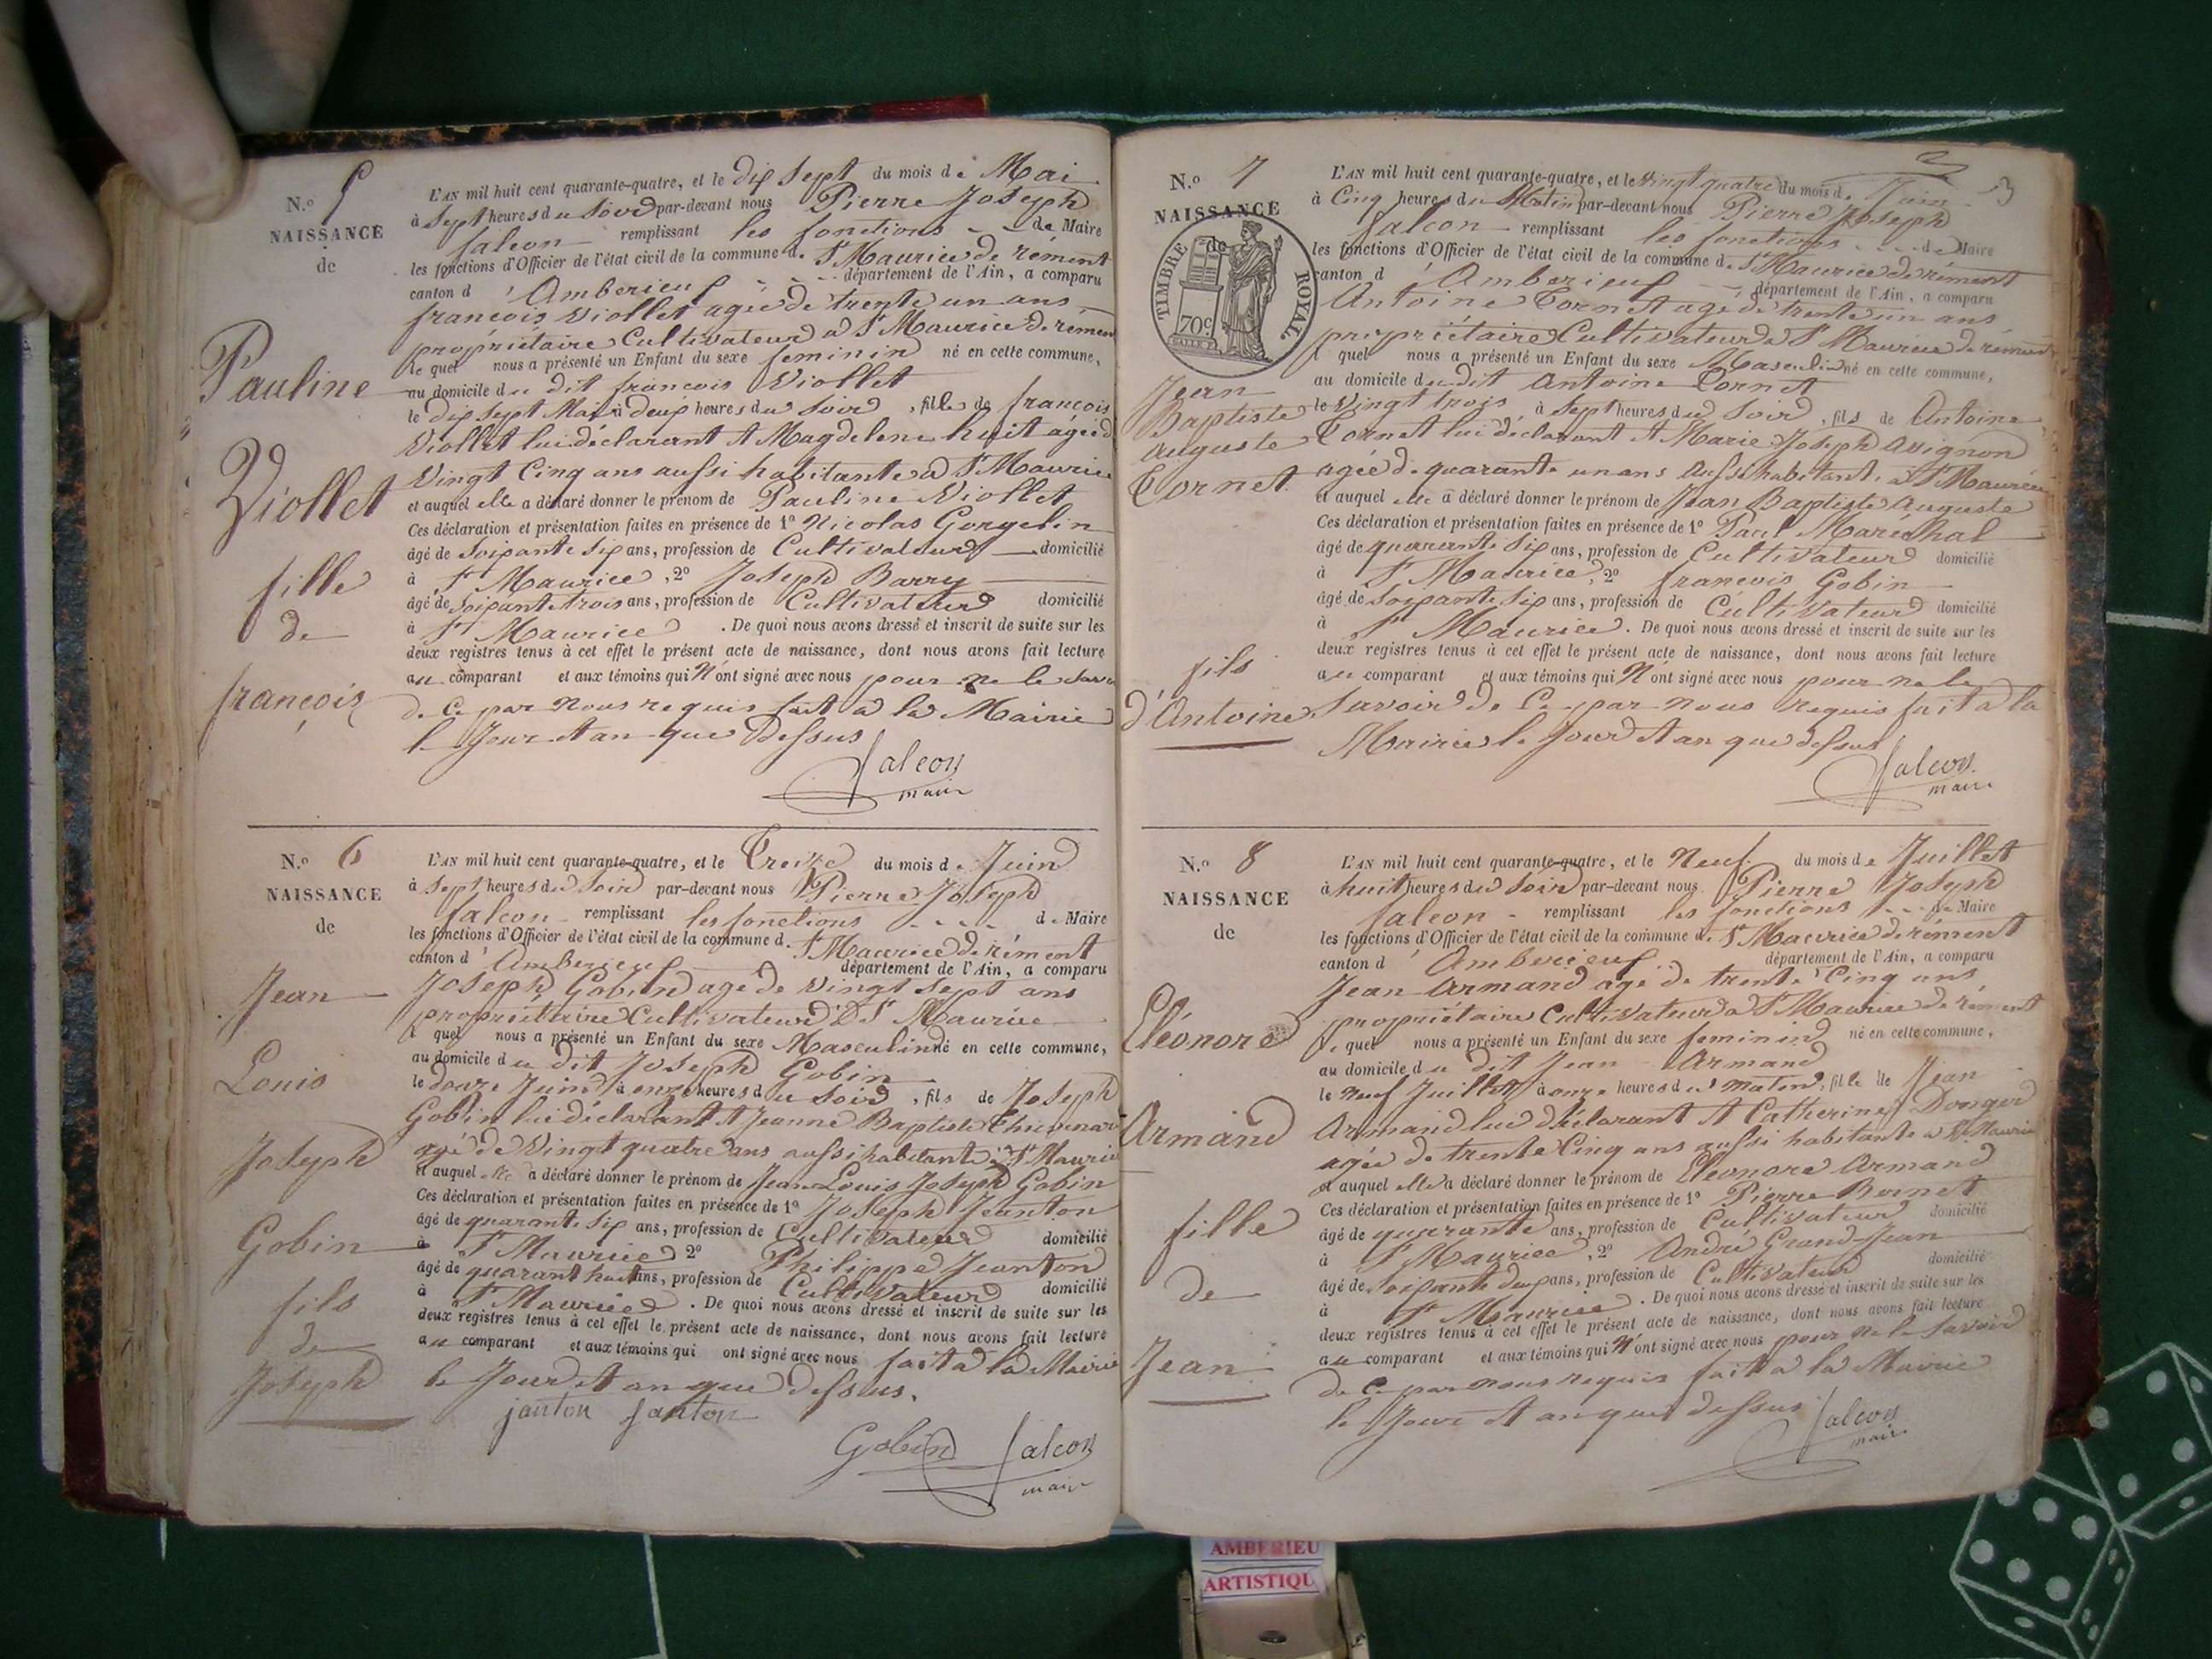 N.o 5
NAISSANCE
de
Pauline
Viollet
fille
de
françois
L'AN mil huit cent quarante-quatre, et le dix Sept du mois de Mai
à Sept heures du Soir par-devant nous Pierre Joseph
falcon remplissant les fonctions de Maire
les fonctions d'Officier de l'état civil de la commune d. St Maurice de rément
canton d'Amberieux département de l'Ain, a comparu
françois Viollet agée de trente un ans
propriétaire Cultivateur a St Maurice de rément
le quel nous a présenté un Enfant du sexe feminin né en cette commune,
au domicile du dit françois Viollet
le dix Sept Mai à deux heures du Soir, fille de françois
Viollet lui déclarant et Magdelene huit agée d
Vingt Cinq ans aussi habitante a St Maurice
et auquel elle a déclaré donner le prénom de Pauline Viollet
Ces déclaration et présentation faites en présence de 1o Nicolas Gorgelin
âgé de Soixante Six ans, profession de Cultivateur domicilié
à St Maurice, 2o Joseph Barry
âgé de Soixante trois ans, profession de Cultivateur domicilié
à St Maurice. De quoi nous avons dressé et inscrit de suite sur les
deux registres tenus à cet effet le présent acte de naissance, dont nous avons fait lecture
au comparant et aux témoins qui N'ont signé avec nous pour ne le Savoir
de Ce par Nous requis fait a la Mairie
le Jour et an que Dessus
falcon
maire
N.o 6
NAISSANCE
de
Jean
Louis
Joseph
Gobin
fils
de
Joseph
L'AN mil huit cent quarante-quatre, et le Treize du mois de Juin
à Sept heures du Soir par-devant nous Pierre Joseph
falcon remplissant les fonctions de Maire
les fonctions d'Officier de l'état civil de la commune d. St Maurice de rément
canton d'Amberieux département de l'Ain, a comparu
Joseph Gobin age de Vingt Sept ans
propriétaire Cultivateur D St Maurice
le quel nous a présenté un Enfant du sexe Masculin né en cette commune,
au domicile du dit Joseph Gobin
le douze Juin à onze heures du Soir, fils de Joseph
Gobin lui déclarant et Jeanne Baptiste
agé de Vingt quatre ans aussi habitante a St Maurice
et auquel elle a déclaré donner le prénom de Jean Louis Joseph Gobin
Ces déclaration et présentation faites en présence de 1o Joseph Jeanton
âgé de quarante Six ans, profession de Cultivateur domicilié
à St Maurice 2o Philippe Jeanton
âgé de quarant huit ans, profession de Cultivateur domicilié
à St Maurice. De quoi nous avons dressé et inscrit de suite sur les
deux registres tenus à cet effet le présent acte de naissance, dont nous avons fait lecture
au comparant et aux témoins qui ont signé avec nous fait a la Mairie
le Jour et an que dessus.
janton janton
Gobin falcon
maire
3
N.o 7
NAISSANCE
de
TIMBRE ROYAL
70c
Jean
Baptiste
Auguste
Cornet
fils
d'Antoine
L'AN mil huit cent quarante-quatre, et le Vingt quatre du mois d. Juin
à Cinq heures du Matin par-devant nous Pierre Joseph
falcon remplissant les fonctions de Maire
les fonctions d'Officier de l'état civil de la commune d. St Maurice de rément
canton d'Amberieux département de l'Ain, a comparu
Antoine Cornet agé de trente un ans
propriétaire Cultivateur a St Maurice de rément
l quel nous a présenté un Enfant du sexe Masculin né en cette commune,
au domicile du dit Antoine Cornet
le Vingt trois à Sept heures du Soir, fils de Antoine
Cornet lui déclarant et Marie Joseph Avignon
agée de quarante un ans Aussi habitant. a St Maurice
et auquel elle a déclaré donner le prénom de Jean Baptiste Auguste
Ces déclaration et présentation faites en présence de 1o Paul Maréchal
âgé de quarante Six ans, profession de Cultivateur domicilié
à St Maurice, 2o françois Gobin
âgé de Soixante Six ans, profession de Cultivateur domicilié
à St Maurice. De quoi nous avons dressé et inscrit de suite sur les
deux registres tenus à cet effet le présent acte de naissance, dont nous avons fait lecture
au comparant et aux témoins qui N'ont signé avec nous pour ne le
Savoir de Ce par Nous requis fait a la
Mairie le Jour et an que dessus
falcon
maire
N.o 8
NAISSANCE
de
Eléonore
Armand
fille
de
Jean
L'AN mil huit cent quarante-quatre, et le Neuf du mois de Juillet
à huit heures du Soir par-devant nous Pierre Joseph
falcon remplissant les fonctions de Maire
les fonctions d'Officier de l'état civil de la commune d. St Maurice de rément
canton d'Amberieux département de l'Ain, a comparu
Jean Armand age de trente Cinq ans
propriétaire Cultivateur a St Maurice de rément
le quel nous a présenté un Enfant du sexe feminin né en cette commune,
au domicile du dit Jean Armand
le Neuf Juillet à onze heures du matin, fille de Jean
Armand lui déclarant et Catherine Donger
agée de trente Cinq ans aussi habitante a St Maurice
et auquel elle a déclaré donner le prénom de Eléonore Armand
Ces déclaration et présentation faites en présence de 1o Pierre Bornet
âgé de quarante ans, profession de Cultivateur domicilié
à St Maurice, 2o André Grand-Jean
âgé de Soixante deux ans, profession de Cultivateur domicilié
à St Maurice. De quoi nous avons dressé et inscrit de suite sur les
deux registres tenus à cet effet le présent acte de naissance, dont nous avons fait lecture
au comparant et aux témoins qui N'ont signé avec nous pour ne le Savoir
de Ce par nous requis fait a la Mairie
le Jour et an que dessus
falcon
maire
AMBERIEU
ARTISTIQU